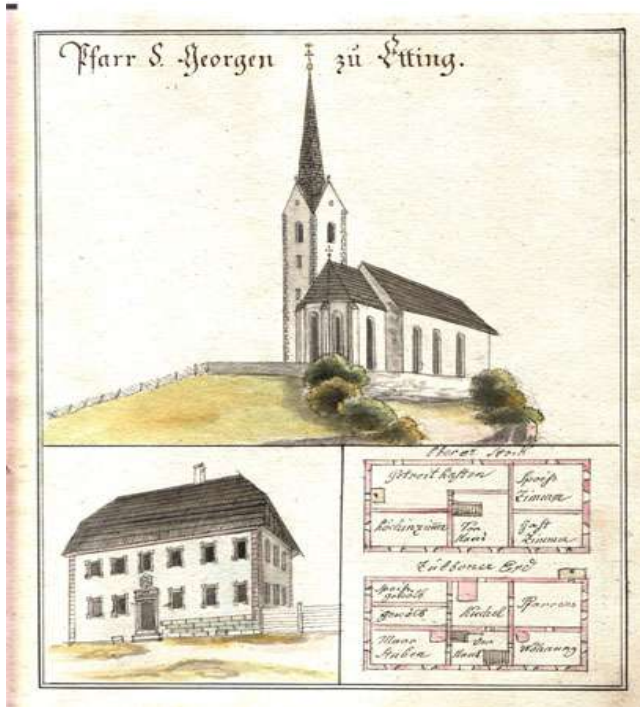 Pfarr S. Georgen zu Etting.
Oberer Stock
Getreit Kasten
Speiß
Zimmer
Köchinzimer
Vor
Haus
Gast
Zimmer
Zu Ebener Erd
Speiß
gewölb
gewölb
Kuchel
Pfarrers
Maar
Stuben
Vor
Haus
Wohnung